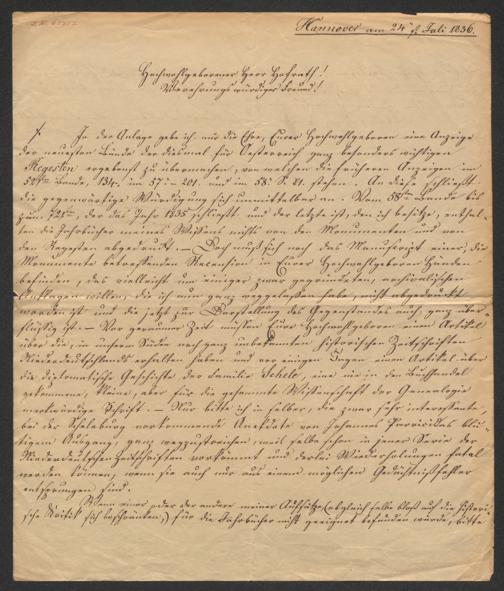 Hannover am 24t Juli 1836.
Hochwohlgeborner Herr Hofrath!
Verehrungswürdiger Freund!
In der Anlage gebe ich mir die Ehre, Eurer Hochwohlgeboren eine Anzeige
der neuesten Bände der diesmal für Oesterreich ganz besonders wichtigen
Regesten ergebenst zu übermachen, von welchen die früheren Anzeigen im
52ten Bande, 134. im 57: 201. und im 58: S. 81. stehen. An diese schließt
die gegenwärtige Würdigung sich unmittelbar an. Vom 58ten Bande bis
zum 72ten, der das Jahr 1835 schließt und der letzte ist, den ich besitze, enthal-
ten die Jahrbücher meines Wissens nichts von den Monumenten und von
den Regesten abgedruckt. – Doch muß sich noch das Manuscript einer, die
Monumente betreffenden Recension in Eurer Hochwohlgeboren Händen
befinden, das vielleicht um einiger zwar gegründeten, archivalischen
Anklagen willen, die ich nun ganz weggelassen habe, nicht abgedruckt
worden ist und die jetzt zur Darstellung des Gegenstandes auch ganz über-
flüssig ist. – Vor geraumer Zeit müssen Eure Hochwohlgeboren einen Artikel
über die, in unserm Süden noch ganz unbekannten historischen Zeitschriften
Niederdeutschlands erhalten haben und vor einigen Tagen einen Artikel über
die diplomatische Geschichte der Familie Schele, eine nie in den Buchhandel
gekommene, kleine, aber für die gesammte Wissenschaft der Genealogie
merkwürdige Schrift. – Nur bitte ich in selber, die zwar sehr interessante,
bei der Schelenburg vorkommende Anekdote von Johannes blu-
tigem Ausgang, ganz wegzustreichen, weil selbe schon in jener Serie der
Niederdeutschen Zeitschriften vorkommt und derlei Wiederholungen fatal
werden können, wenn sie auch nur aus einem möglichen Gedächtnißfehler
entsprungen sind.
Wenn einer oder der andere meiner Aufsätze (obgleich selbe bloß auf die histori-
sche Kritik sich beschränken,) für die Jahrbücher nicht geeignet befunden würde, bitte